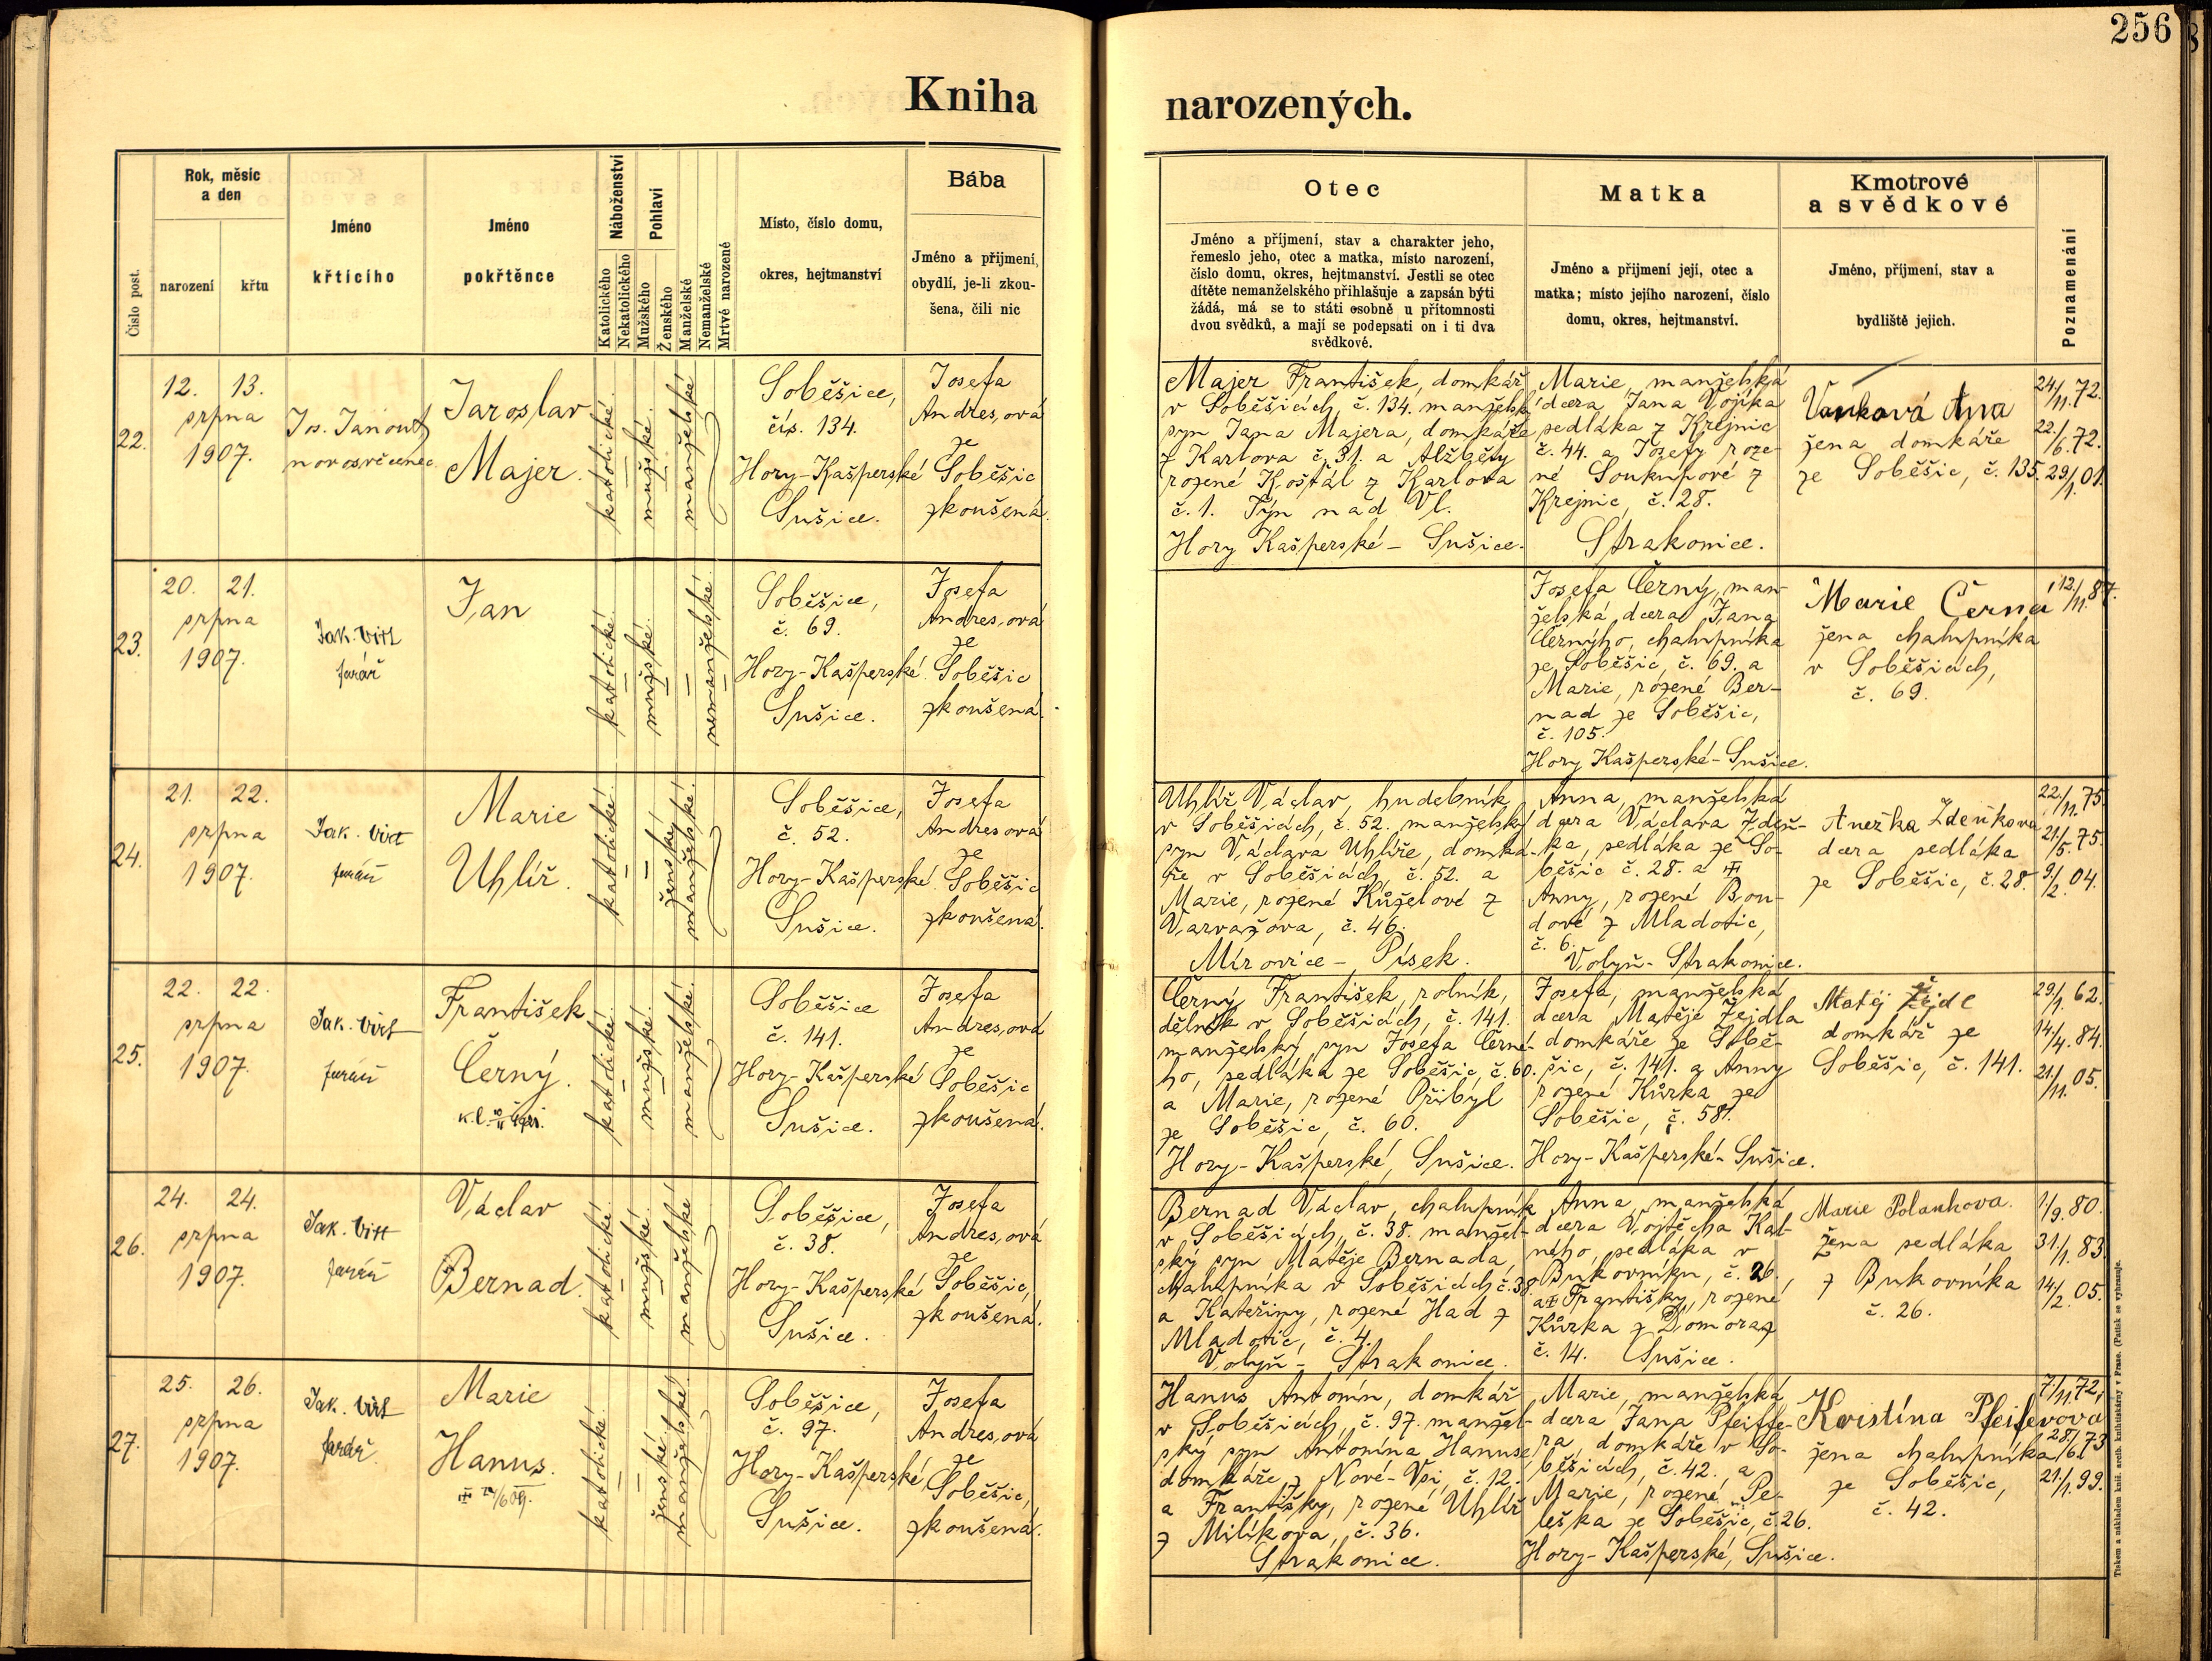 256
Kniha narozených.
Číslo post.
Rok, měsíc a den
narození
křtu
Jméno křtícího
Jméno pokřtěnce
Náboženství
Katolického
Nekatolického
Pohlaví
Mužského
Ženského
Manželské
Nemanželské
Mrtvě narozené
Místo, číslo domu,
okres, hejtmanství
Bába
Jméno a přijmení,
obydlí, je-li zkou-
šena, čili nic
Otec
Jméno a příjmení, stav a charakter jeho,
řemeslo jeho, otec a matka, místo narození,
číslo domu, okres, hejtmanství. Jestli se otec
dítěte nemanželského přihlašuje a zapsán býti
žádá, má se to státi osobně u přítomnosti
dvou svědků, a mají se podepsati on i ti dva
svědkové.
Matka
Jméno a přijmení její, otec a
matka; místo jejího narození, číslo
domu, okres, hejtmanství.
Kmotrové
a svědkové
Jméno, příjmení, stav a
bydliště jejich.
Poznamenání
22.
12. 13.
srpna
1907.
Jos. Janout
novosvěcenec
Jaroslav
Majer.
katolické.
mužské.
manželské
Soběšice,
čís. 134.
Hory-Kašperské
Sušice.
Josefa
Andresová
ze
Soběšic
zkoušená.
Majer František, domkář
v Soběšicích, č. 134. manželský
syn Jana Majera, domkáře
z Karlova č. 31. a Alžběty
rozené Koštál z Karlova
č. 1. Týn nad Vl.
Hory Kašperské - Sušice.
Marie, manželská
dcera Jana Vojíka
sedláka z Krejnic
č. 44. a Josefy roze-
né Soukupové z
Krejnic, č. 28.
Strakonice.
Vaňková Anna
žena domkáře
ze Soběšic, č. 135.
24/11. 72.
22./6. 72.
29/1. 01.
23.
20. 21.
srpna
1907.
Jak. Virt
farář
Jan
katolické.
mužské.
nemanželské.
Soběšice,
č. 69.
Hory-Kašperské.
Sušice.
Josefa
Andresová
ze
Soběšic
zkoušená.
Josefa Černý, man-
želská dcera Jana
Černýho, chalupníka
ze Soběšic, č. 69. a
Marie, rozené Ber-
nad ze Soběšic,
č. 105.
Hory Kašperské-Sušice.
Marie Černá
žena chalupníka
v Soběšicích,
č. 69.
12/11. 87.
24.
21. 22.
srpna
1907.
Jak. Virt
farář
Marie
Uhlíř.
katolické.
ženský
manželské.
Soběšice,
č. 52.
Hory-Kašperské.
Sušice.
Josefa
Andresová
ze
Soběšic
zkoušená.
Uhlíř Václav, hudebník
v Soběšicích, č. 52. manželský
syn Václava Uhlíře, domká-
ře v Soběšicích, č. 52. a
Marie, rozené Kůželové z
Varvažova, č. 46.
Mirovice - Písek.
Anna, manželská
dcera Václava Zdeň-
ka, sedláka ze So-
běšic č. 28. a
Anny, rozené Bou-
dové z Mladotic,
č. 6.
Volyň - Strakonice.
Anežka Zdeňkova
dcera sedláka
ze Soběšic, č. 28.
22./11. 75.
21/5. 75.
9/2. 04.
25.
22. 22.
srpna
1907.
Jak. Virt
farář
František
Černý.
katolické.
mužské.
manželské.
Soběšice
č. 141.
Hory-Kašperské
Sušice.
Josefa
Andresová
ze
Soběšic
zkoušená.
Černý František, rolník,
dělník v Soběšicích, č. 141.
manželský syn Josefa Černé-
ho, sedláka ze Soběšic, č. 60.
a Marie, rozené Přibyl
ze Soběšic, č. 60.
Hory-Kašperské, Sušice.
Josefa, manželská
dcera Matěje Žejdla
domkáře ze Sobě-
šic, č. 141. a Anny
rozené Kůrka ze
Soběšic, č. 58.
Hory-Kašperské-Sušice.
Matěj Žejdl
domkář ze
Soběšic, č. 141.
29/1. 62.
14/4. 84.
21/11. 05.
26.
24. 24.
srpna
1907.
Jak. Virt
farář
Václav
Bernad.
katolické
mužské.
manželské
Soběšice,
č. 38.
Hory-Kašperské
Sušice.
Josefa
Andresová
ze
Soběšic,
zkoušená.
Bernad Václav, chalupník
v Soběšicích, č. 38. manžel-
ský syn Matěje Bernada,
chalupníka v Soběšicích č. 38.
a Kateřiny, rozené Had z
Mladotic, č. 4.
Volyň - Strakonice.
Anna, manželská
dcera Vojtěcha Kal-
ného, sedláka v
Bukovníku, č. 26.,
a Františky, rozené
Kůrka z Domoraz
č. 14. Sušice.
Marie Polankova.
žena sedláka
z Bukovníka
č. 26.
1/9. 80.
31/1. 83.
14/2. 05.
27.
25. 26.
srpna
1907.
Jak. Virt
farář.
Marie
Hanus.
katolické.
ženské.
manželské.
Soběšice,
č. 97.
Hory-Kašperské
Sušice.
Josefa
Andresová
ze
Soběšic,
zkoušená.
Hanus Antonín, domkář
v Soběšicích, č. 97. manžel-
ský syn Antonína Hanuse
domkáře z Nové-Vsi, č. 12.
a Františky, rozené Uhlíř
z Milíkova, č. 36.
Strakonice.
Marie, manželská
dcera Jana Pfeiffe-
ra, domkáře v So-
běšicích, č. 42., a
Marie, rozené Pe-
leška ze Soběšic, č. 26.
Hory-Kašperské, Sušice.
Kristína Pfeifrova
žena chalupníka
ze Soběšic,
č. 42.
7/11. 72,
28/6. 73
21/1. 99.
Tiskem a nákladem kníž. arcib. knihtiskárny v Praze. (Patisk se vyhrazuje.